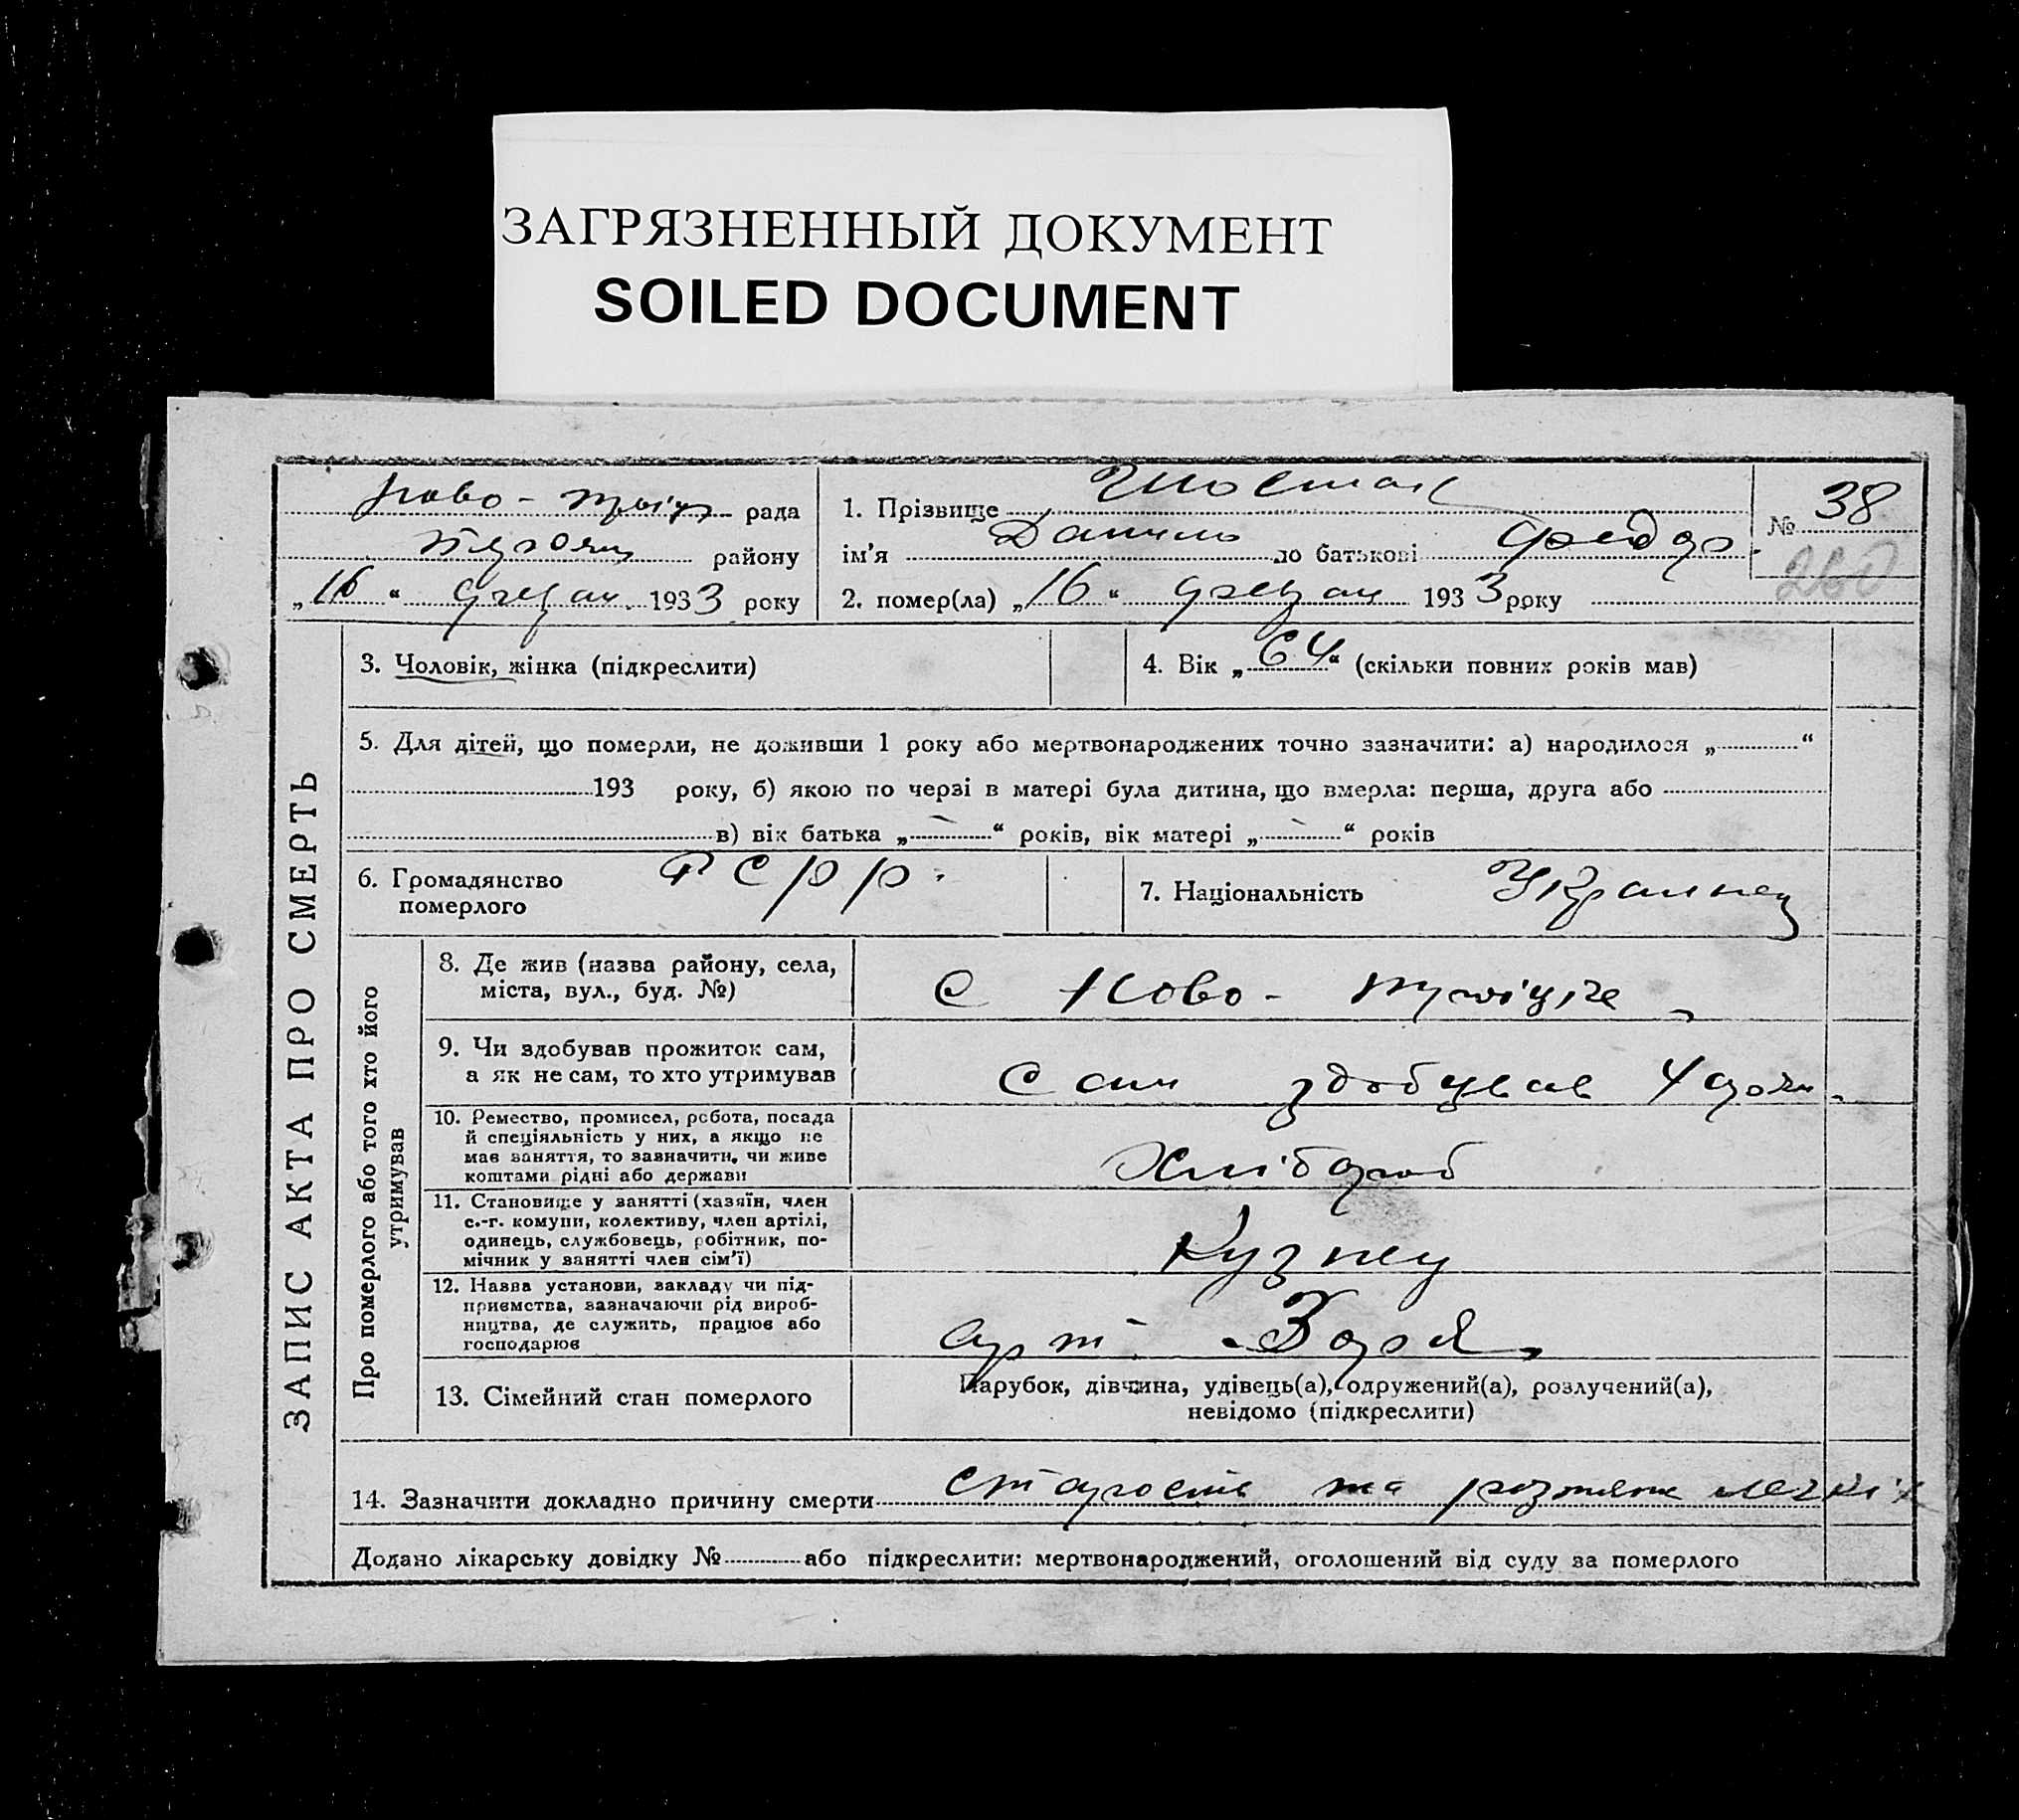 ЗАГРЯЗНЕННЫЙ ДОКУМЕНТ
SOILED DOCUMENT
рада
району
„16“ 1933 року
1. Прізвище Шостак
ім’я Данило по батькові Федор.
2. помер(ла) „16“ 1933 року
№ 38
260
ЗАПИС АКТА ПРО СМЕРТЬ
3. Чоловік, жінка (підкреслити)
4. Вік „64“ (скільки повних років мав)
5. Для дітей, що померли, не доживши 1 року або мертвонароджених точно зазначити: а) народилося „ “
193 року, б) якою по черзі в матері була дитина, що вмерла: перша, друга або
в) вік батька „ - “ років, вік матері „ - “ років
6. Громадянство
померлого
7. Національність Украинец
Про померлого або того хто його
утримував
8. Де жив (назва району, села,
міста, вул., буд. №)
с Ново-
9. Чи здобував прожиток сам,
а як не сам, то хто утримував
Сам здобував 4
10. Ремество, промисел, робота, посада
й спеціяльність у них, а якщо не
мав заняття, то зазначити, чи живе
коштами рідні або держави
Хлібороб
11. Становище у занятті (хазяїн, член
с.-г. комуни, колективу, член артілі,
одинець, службовець, робітник, по-
мічник у занятті член сім’ї)
Кузнец
12. Назва установи, закладу чи під-
приємства, зазначаючи рід вироб-
ництва, де служить, працює або
господарює
арт Зоря
13. Сімейний стан померлого
Парубок, дівчина, удівець(а), одружений(а), розлучений(а),
невідомо (підкреслити)
14. Зазначити докладно причину смерти старость та
Додано лікарську довідку № або підкреслити: мертвонароджений, оголошений від суду за померлого